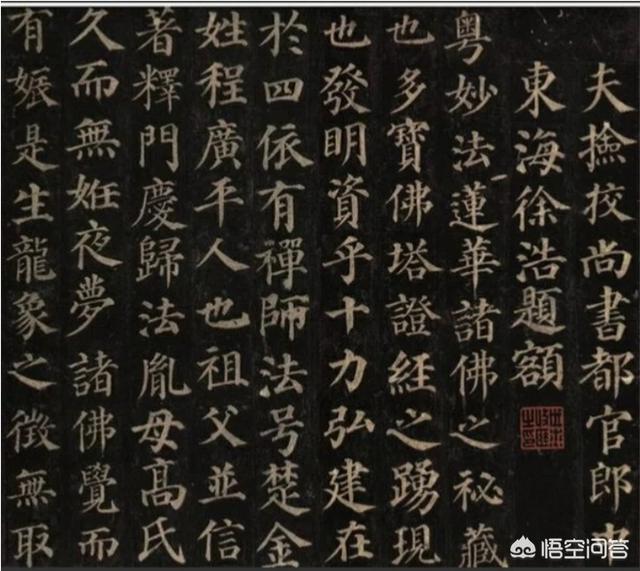 夫撿挍尚書都官郎中
東海徐浩題額
粤妙法蓮華諸佛之祕藏
也多寶佛塔證経之踴現
也發明資乎十力弘建在
於四依有禪師法号楚金
姓程廣平人也祖父並信
著釋門慶歸法胤母髙氏
久而無姙夜夢諸佛覺而
有娠是生龍象之徵無取
悟空问答